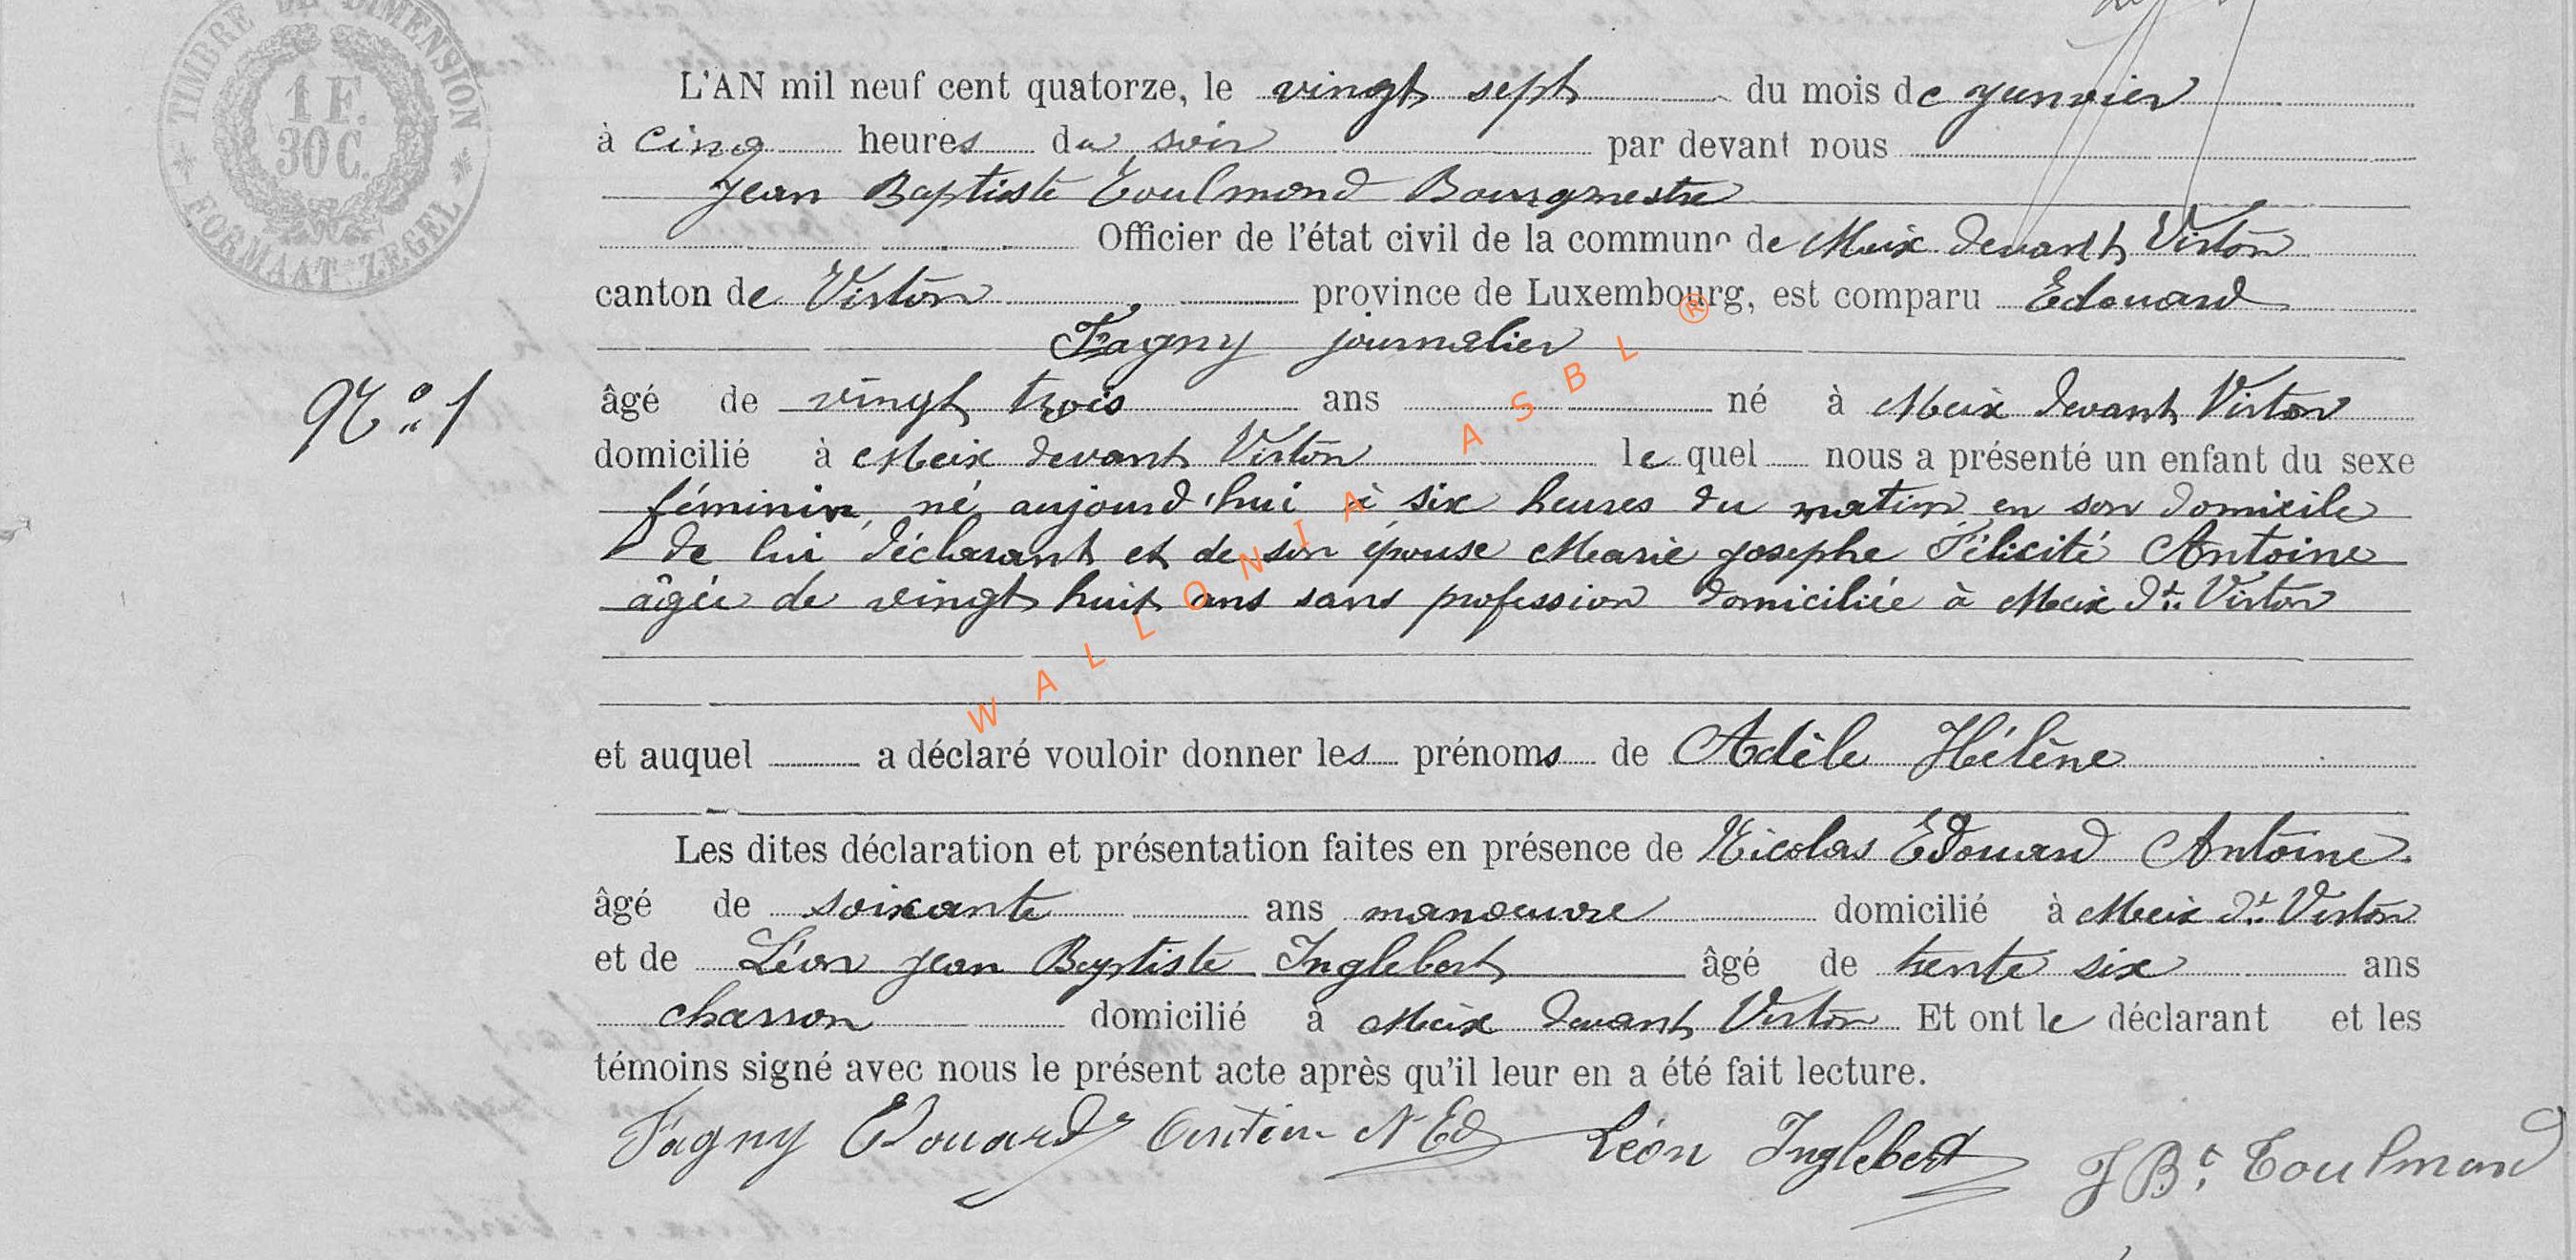 TIMBRE DE DIMENSION
1 F.
30 C.
FORMAAT ZEGEL
L'AN mil neuf cent quatorze, le vingt sept du mois de janvier
à cinq heures du soir par devant nous
Jean Baptiste Toulmond Bourgmestre
Officier de l'état civil de la commune de Meix devant Virton
canton de Virton province de Luxembourg, est comparu Edouard
Fagny journalier
N° 1
âgé de vingt trois ans né à Meix devant Virton
domicilié à Meix devant Virton le quel nous a présenté un enfant du sexe
féminin, né aujourd'hui à six heures du matin en son domicile
de lui déclarant et de son épouse Marie Josephe Félicité Antoine
âgée de vingt huit ans sans profession domiciliée à Meix dt Virton
et auquel a déclaré vouloir donner les prénoms de Adèle Hélène
Les dites déclaration et présentation faites en présence de Nicolas Edouard Antoine
âgé de soixante ans manoeuvre domicilié à Meix dt Virton
et de Léon Jean Baptiste Inglebert âgé de trente six ans
charron domicilié à Meix devant Virton Et ont le déclarant et les
témoins signé avec nous le présent acte après qu'il leur en a été fait lecture.
Fagny Edouard Antoine N Ed Léon Inglebert J Bte Toulmond
WALLONIA ASBL ®